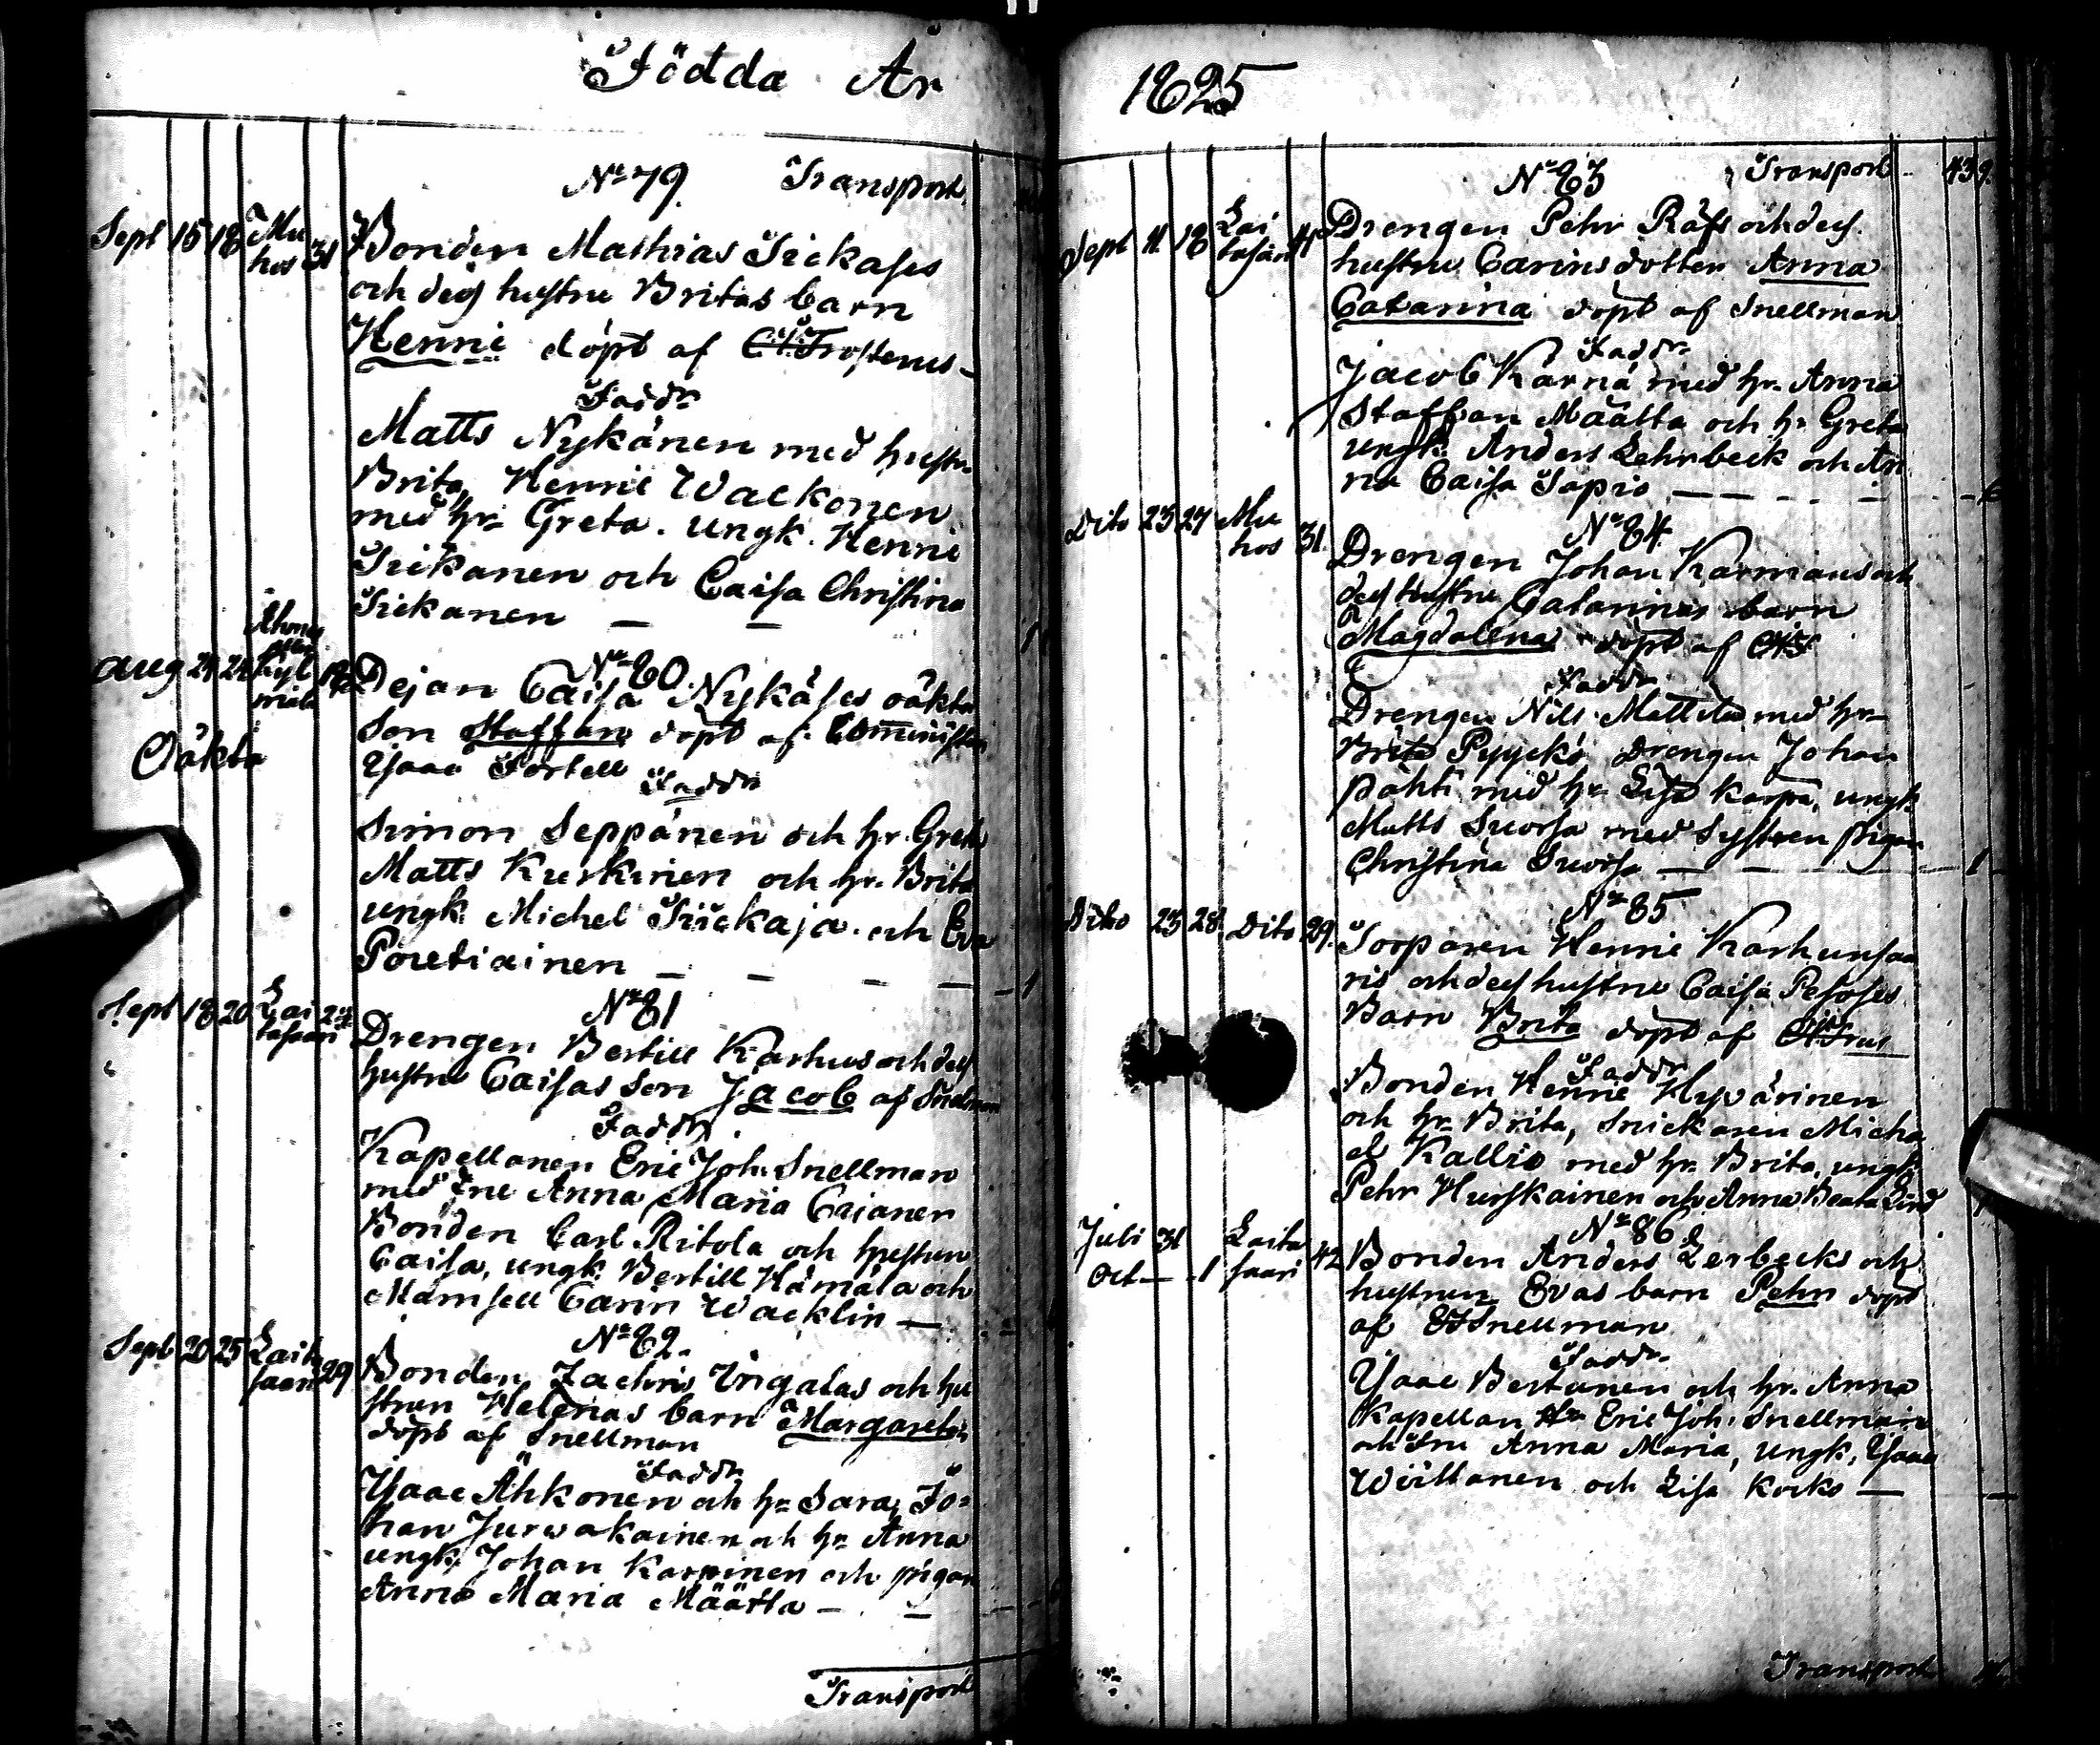 Födda År
No 79. Transport
Sept 15 18 Mu
hos 31 Bonden Mathias Tickases
och dess hustru Britas barn
Henric döpt af
Faddr
Matts Nykänen med hustr
Brita, Henric Wackonen
med hr Greta. ungk. Henric
Tickanen och Caisa Christina
Tickanen — —
No 80
Aug 24 24 Kyl
mälä Dejan Caisa Nykäses oäkta
Oäkta
Son Staffan döpt af Comminister
Isaac Fortell
Faddr
Simon Seppänen och hr. Greta
Matts Kurkinen och hr. Brita
ungk. Michel Tickaja och Eva
Pouetiainen — — — — 1
No 81
Sept 18 20 Lai
tasaari 24 Drengen Bertill Karhus och dess
hustru Caisas Son Jacob af Snellman
Faddr
Kapellanen Eric Joh. Snellman
med Frue Anna Maria Cajaner
Bonden Carl Ritola och hustrun
Caisa, ungk. Bertill Hämälä och
Mamsell Carin Wacklin —
No 82.
Sept 20 25 Laita
saari 29 Bonden Zachris Ingalas och hu
strun Helenas barn Margareta
döpt af Snellman
Faddr
Isaac Åhkonen och hr Sara, Jo=
han Jurwakainen och hr Anna
ungk. Johan Karpinen och pigan
Anna Maria Määttä — —
Transport
1825
No 83 Transport 43 9.
Sept 11 18 Lai
tasari 41 Drengen Pehr Räfs och dess
hustru Carins dotter Anna
Catarina döpt af Snellman
Faddr
Jacob Kärnä med hr. Anna
Staffan Määttä och hr Greta
ungk. Anders Lehrbeck och An
na Caisa Sapio — —
No 84.
Dito 25 27 Mu
hos 31. Drengen Johan Karnaus och
dess hustru Catarinas barn
Magdalena döpt af
Faddr
Drengen Nils Mattila med hr
Brita Pyyckö, Drengen Johan
Pahti med hr Lisa Karpa, ungk
Matts Suorsa med Systren pigan
Christina Suorsa — — 1
No 85
Dito 25 28 Dito 29. Sorparen Henric Karhunsaa
ris och dess hustru Caisa Pesoses
Barn Brita döpt af
Faddr
Bonden Henric Hyvärinen
och hr Brita, Snickaren Micha
el Kallio med hr Brita, ungk
Pehr Hurskainen och Anna Beata Lind
No 86
Juli 31
Oct — 1 Laita
saari 42 Bonden Anders Lerbecks och
hustrun Evas barn Pehr döpt
af EJSnellman
Faddr
Isaac Bertunen och hr. Anna
Kapellan Hr Eric Joh. Snellman
och Fru Anna Maria, ungk, Isaac
Wäätänen och Lisa Kocko —
Transport